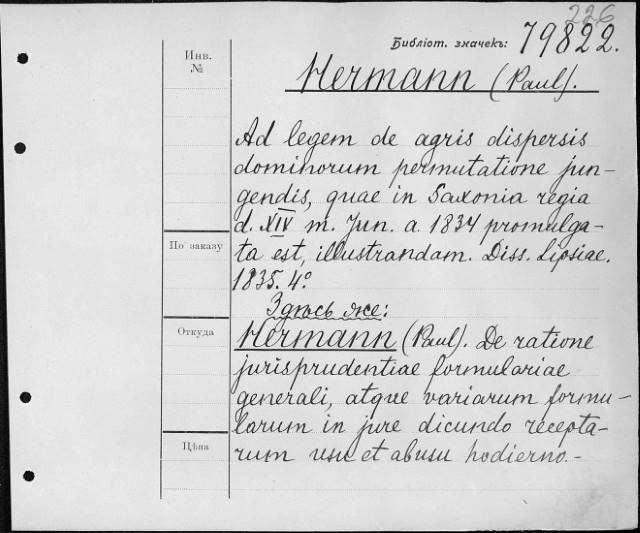 226
Библіот. значекъ: 79822.
Инв.
№
Hermann (Paul).
Ad legem de agris dispersis
dominorum permutatione jun-
gendis, quae in Saxonia regia
d. XIV m. Jun. a. 1834 promulga-
По заказу
ta est, illustrandam. Diss. Lipsiae.
1835. 4°.
Здѣсь же:
Откуда
Hermann (Paul). De ratione
jurisprudentiae formulariae
generali, atque variarum formu-
larum in jure dicundo recepta-
Цѣна
rum usu et abusu hodierno.-